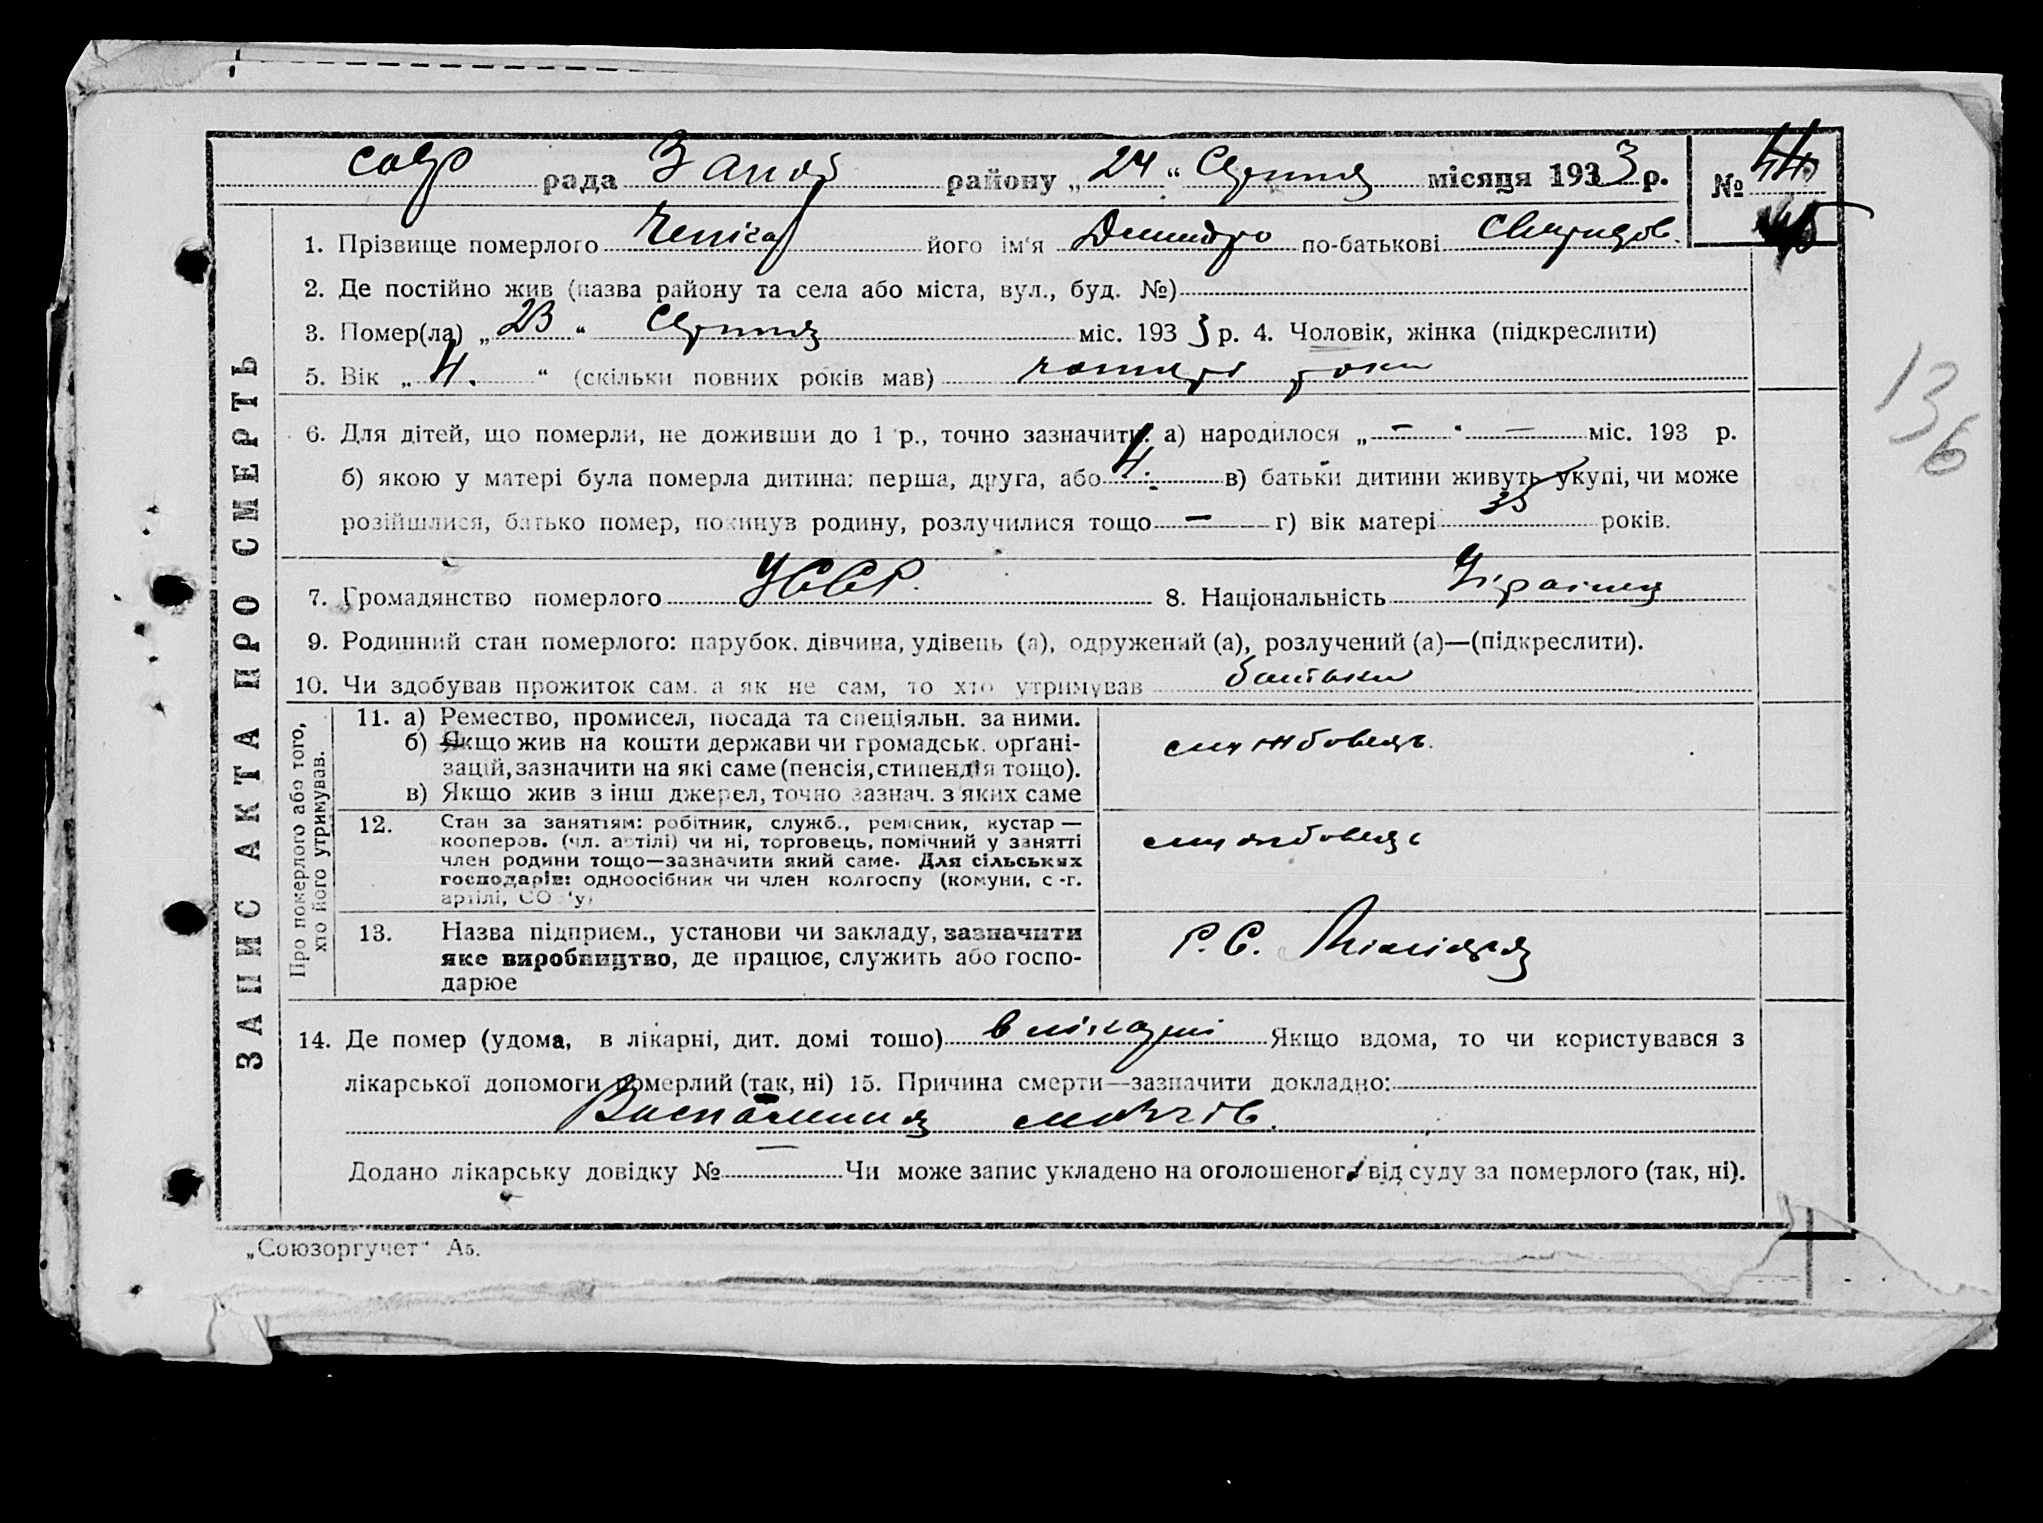 рада района „24“ Серпня місяця 1933 р. № 44
1. Прізвище померлого Чепіга його ім'я Дмитро по-батькові Свиридов.
2. Де постійно жив (назва району та села або міста, вул., буд. №)
3. Помер(ла) „23“ Серпня міс. 1933 р. 4. Чоловік, жінка (підкреслити)
5. Вік „4.“ (скільки повних років мав) чотирі роки
136
6. Для дітей, що померли, не доживши до 1 р., точно зазначити: а) народилося „— “ — міс. 193 р.
б) якою у матері була померла дитина: перша, друга, або 4. в) батьки дитини живуть укупі, чи може
розійшлися, батько помер, покинув родину, розлучилися тощо — г) вік матері 35 років.
7. Громадянство померлого УССР. 8. Національність Українец
9. Родинний стан померлого: парубок, дівчина, удівець (а), одружений (а), розлучений (а)—(підкреслити).
10. Чи здобував прожиток сам, а як не сам, то хто утримував батьки
ЗАПИС АКТА ПРО СМЕРТЬ
Про померлого або того, хто його утримував.
11. а) Ремество, промисел, посада та спеціяльн. за ними.
б) Якщо жив на кошти держави чи громадськ. орґані-
зацій, зазначити на які саме (пенсія, стипендія тощо).
в) Якщо жив з інш джерел, точно зазнач. з яких саме
службовець.
12. Стан за занятіям: робітник, служб., ремісник, кустар—
кооперов. (чл. артілі) чи ні, торговець, помічний у занятті
член родини тощо—зазначити який саме. Для сільських
господарів: одноосібник чи член колгоспу (комуни, с-г.
артілі,
службовець
13. Назва підприєм., установи чи закладу, зазначити
яке виробництво, де працює, служить або госпо-
дарює
Р. С. Міліція
14. Де помер (удома, в лікарні, дит. домі тощо) в лікарні Якщо вдома, то чи користувався з
лікарської допомоги померлий (так, ні) 15. Причина смерти—зазначити докладно:
Воспаления мозгів.
Додано лікарську довідку № — Чи може запис укладено на оголошеного від суду за померлого (так, ні).
„Союзоргучет“ А5.